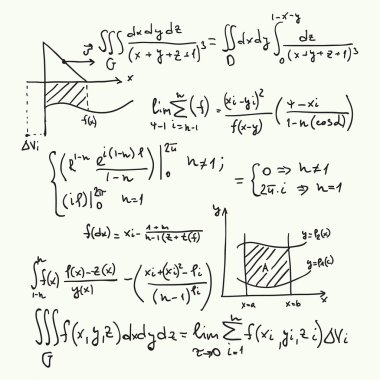 ∭_G dxdydz/(x+y+z+1)³ = ∬_D dxdy ∫₀^(1-x-y) dz/(x+y+z+1)³
x
f(x)
ΔVi
lim_(4-1) Σ_(i=n-1)^n (f) = (xi-yi)²/f(x-y) - (4-xi/1-n(cosd))
{ (ℓ^(1-n) e^(i(1-n)φ)/(1-n)) |₀^(2π) n≠1; = { 0 ⇒ n≠1
(iφ)|₀^(2π) n=1 2π.i ⇒ n=1
f(dx) = xi - (1+n)/(n-1(z+z(f)))
y
y=f₂(x)
A
y=f₁(x)
x=a x=b x
∫_(1-n)^n f(x) (f(x)-z(x))/y(x) - ((xi+(xi)²-fi)/(n-1)^fi)
∭_G f(x,y,z)dxdydz = lim_(τ→0) Σ_(i=1)^n f(xi,yi,zi)ΔVi